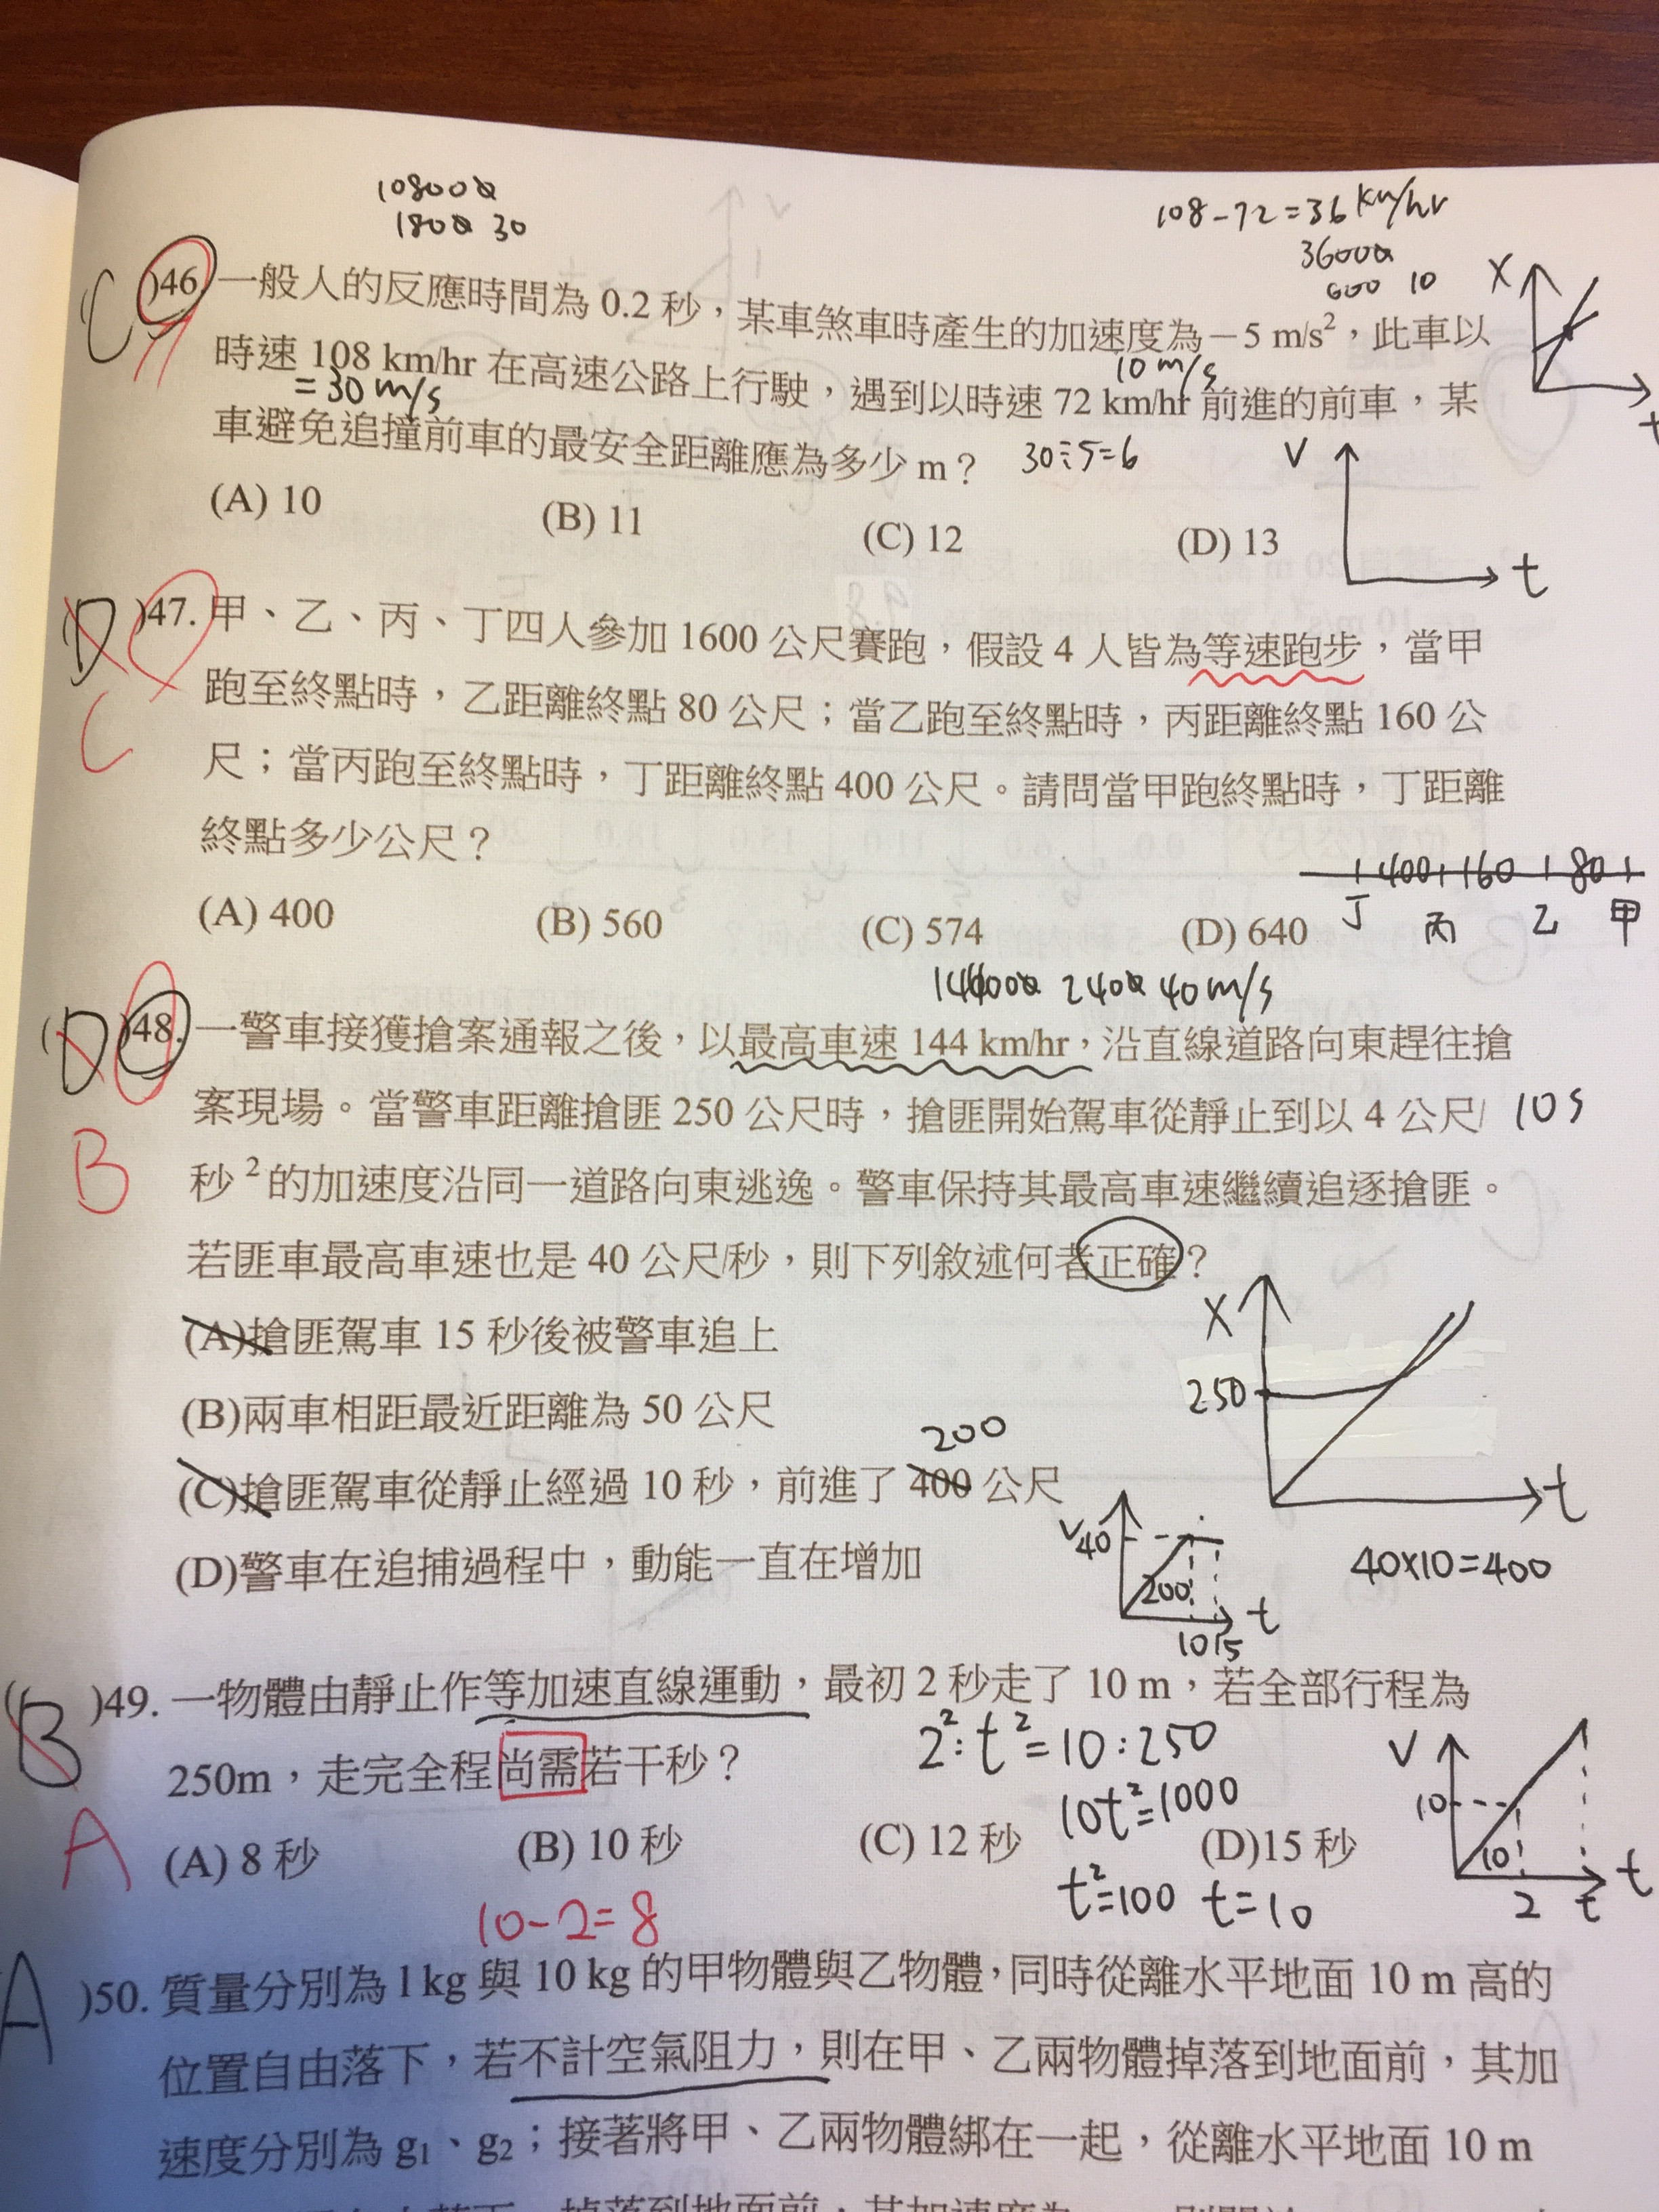 108000
1800 30
108-72=36 km/hr
36000
600 10
(C )46. 一般人的反應時間為 0.2 秒，某車煞車時產生的加速度為－5 m/s²，此車以
X
時速 108 km/hr 在高速公路上行駛，遇到以時速 72 km/hr 前進的前車，某
=30 m/s
10 m/s
t
車避免追撞前車的最安全距離應為多少 m？ 30÷5=6
V
t
(A) 10 (B) 11 (C) 12 (D) 13
(D )47. 甲、乙、丙、丁四人參加 1600 公尺賽跑，假設 4 人皆為等速跑步，當甲
C
跑至終點時，乙距離終點 80 公尺；當乙跑至終點時，丙距離終點 160 公
尺；當丙跑至終點時，丁距離終點 400 公尺。請問當甲跑終點時，丁距離
終點多少公尺？
400 160 80
丁 丙 乙 甲
(A) 400 (B) 560 (C) 574 (D) 640
144000 2400 40m/s
(D )48. 一警車接獲搶案通報之後，以最高車速 144 km/hr，沿直線道路向東趕往搶
B
案現場。當警車距離搶匪 250 公尺時，搶匪開始駕車從靜止到以 4 公尺/ 10s
秒²的加速度沿同一道路向東逃逸。警車保持其最高車速繼續追逐搶匪。
若匪車最高車速也是 40 公尺/秒，則下列敘述何者正確？
(A)搶匪駕車 15 秒後被警車追上
X
250
t
(B)兩車相距最近距離為 50 公尺
200
(C)搶匪駕車從靜止經過 10 秒，前進了 400 公尺
(D)警車在追捕過程中，動能一直在增加
V 40
200
10 15 t
40×10=400
(B )49. 一物體由靜止作等加速直線運動，最初 2 秒走了 10 m，若全部行程為
A
250m，走完全程尚需若干秒？
2²:t²=10:250
10t²=1000
t²=100 t=10
V
10
10
2 t t
(A) 8 秒 (B) 10 秒 (C) 12 秒 (D)15 秒
10-2=8
A )50. 質量分別為 1 kg 與 10 kg 的甲物體與乙物體，同時從離水平地面 10 m 高的
位置自由落下，若不計空氣阻力，則在甲、乙兩物體掉落到地面前，其加
速度分別為 g₁、g₂；接著將甲、乙兩物體綁在一起，從離水平地面 10 m